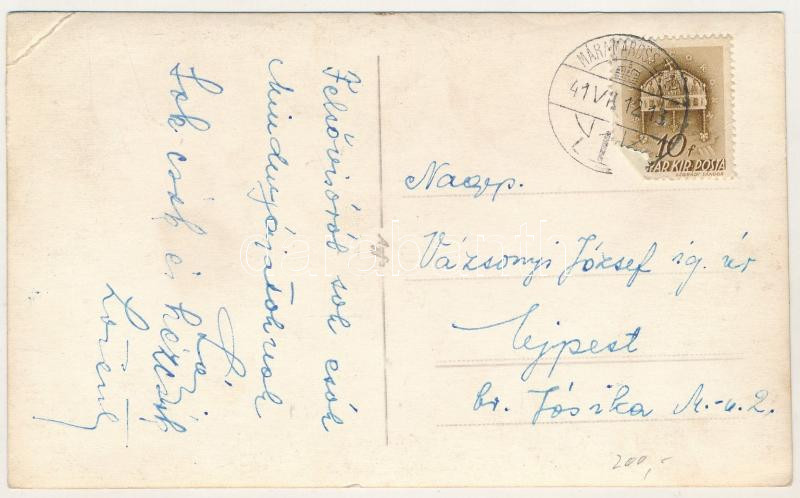 Felsővisóról sok csók
mindnyájatoknak
Laci
Sok csók és kézcsók
MÁRAMAROSS
41 VII. 12
10 f
MAGYAR KIR. POSTA
Nagys.
Vázsonyi József ig. úr
Ujpest
br. Jósika M.-u. 2.
200,-